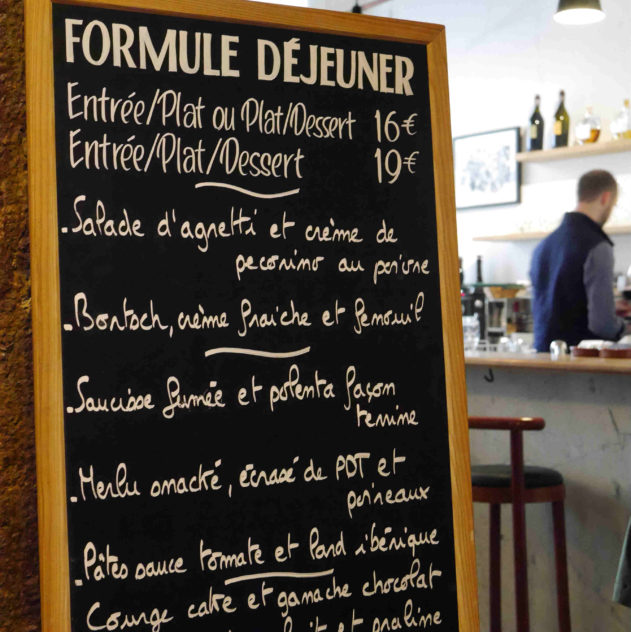 FORMULE DÉJEUNER
Entrée/Plat ou Plat/Dessert 16€
Entrée/Plat/Dessert 19€
.Salade d'agretti et crème de
pecorino au poivre
.Bortsch, crème fraiche et fenouil
.Saucisse fumée et polenta façon
terrine
.Merlu snacké, écrasé de PDT et
poireaux
.Pâtes sauce tomate et lard ibérique
Courge cake et ganache chocolat
et praline